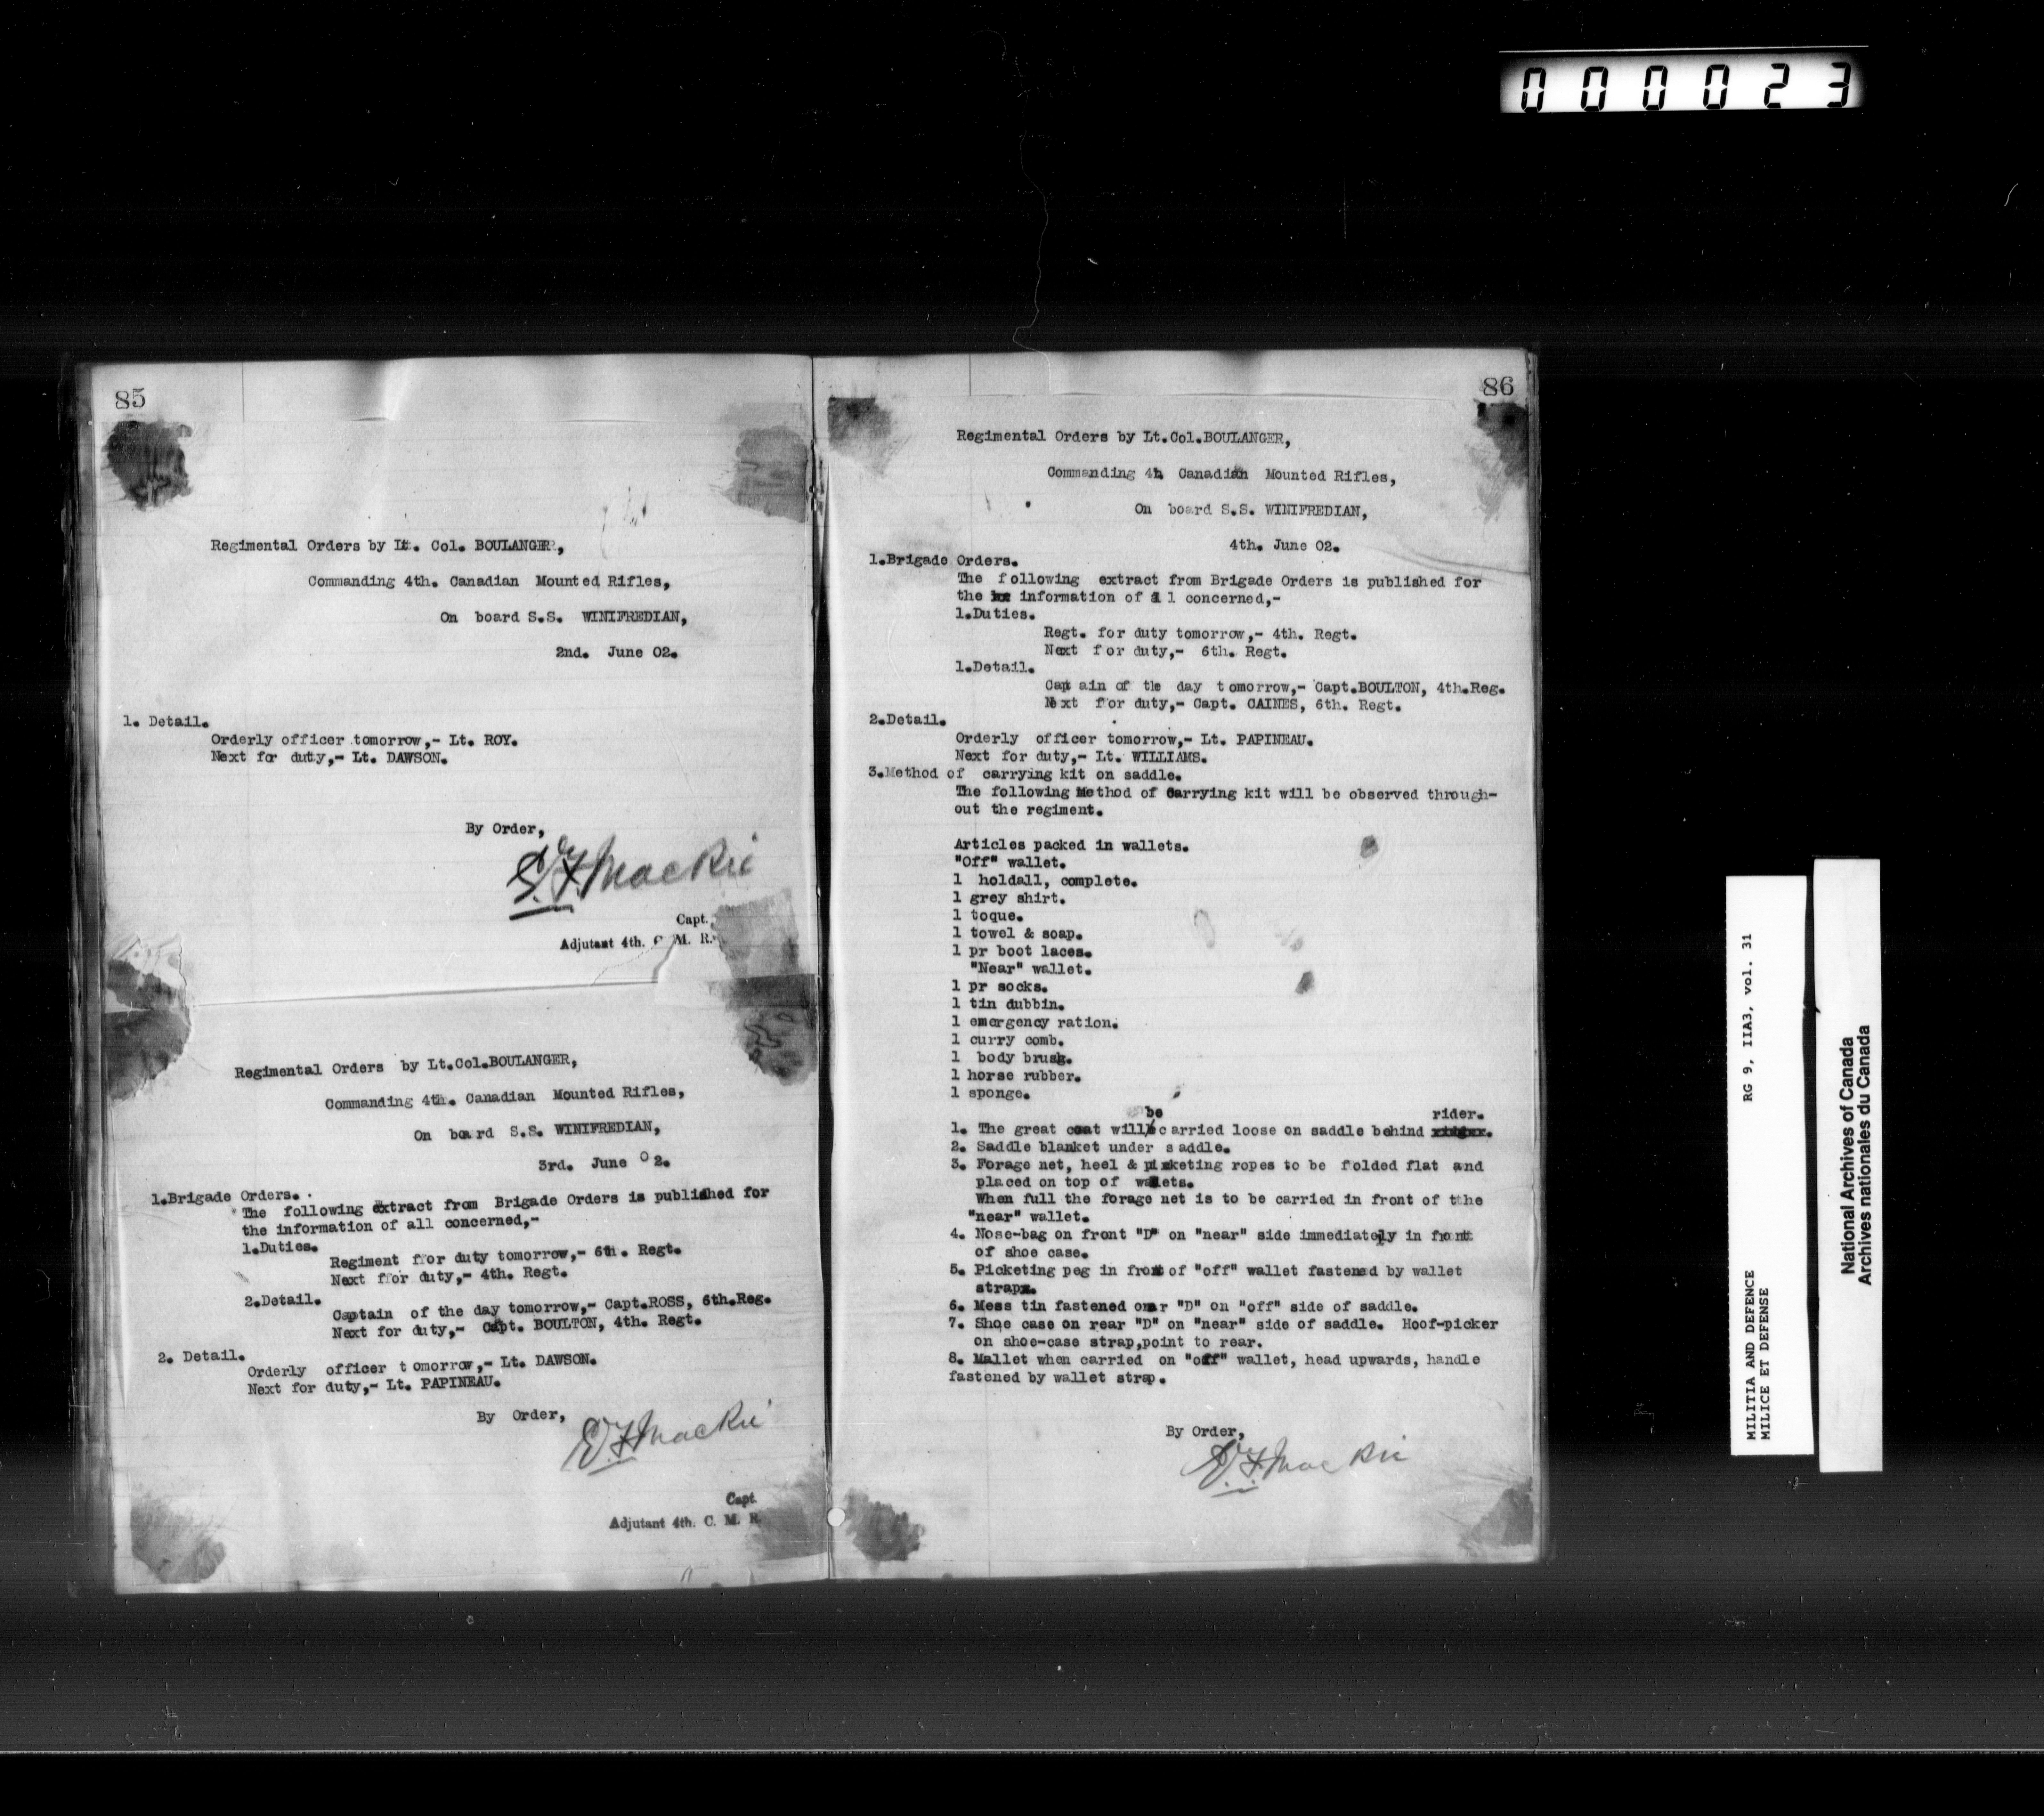 000023
85
Regimental Orders by Lt. Col. BOULANGER,
Commanding 4th. Canadian Mounted Rifles,
On board S.S. WINIFREDIAN,
2nd. June 02.
1. Detail.
Orderly officer tomorrow,- Lt. ROY.
Next for duty,- Lt. DAWSON.
By Order,
E.F. Mackie
Capt.
Adjutant 4th. C. M. R.
Regimental Orders by Lt.Col.BOULANGER,
Commanding 4th. Canadian Mounted Rifles,
On board S.S. WINIFREDIAN,
3rd. June 02.
1.Brigade Orders.
The following extract from Brigade Orders is published for
the information of all concerned,-
1.Duties.
Regiment for duty tomorrow,- 6th. Regt.
Next for duty,- 4th. Regt.
2.Detail.
Captain of the day tomorrow,- Capt.ROSS, 6th.Reg.
Next for duty,- Capt. BOULTON, 4th. Regt.
2. Detail.
Orderly officer tomorrow,- Lt. DAWSON.
Next for duty,- Lt. PAPINEAU.
By Order,
E.F. Mackie
Capt.
Adjutant 4th. C. M. R.
86
Regimental Orders by Lt.Col.BOULANGER,
Commanding 4h Canadian Mounted Rifles,
On board S.S. WINIFREDIAN,
4th. June 02.
1.Brigade Orders.
The following extract from Brigade Orders is published for
the information of all concerned,-
1.Duties.
Regt. for duty tomorrow,- 4th. Regt.
Next for duty,- 6th. Regt.
1.Detail.
Captain of the day tomorrow,- Capt.BOULTON, 4th.Reg.
Next for duty,- Capt. CAINES, 6th. Regt.
2.Detail.
Orderly officer tomorrow,- Lt. PAPINEAU.
Next for duty,- Lt. WILLIAMS.
3.Method of carrying kit on saddle.
The following Method of Carrying kit will be observed through-
out the regiment.
Articles packed in wallets.
"Off" wallet.
1 holdall, complete.
1 grey shirt.
1 toque.
1 towel & soap.
1 pr boot laces.
"Near" wallet.
1 pr socks.
1 tin dubbin.
1 emergency ration.
1 curry comb.
1 body brush.
1 horse rubber.
1 sponge.
1. The great coat will be carried loose on saddle behind rider.
2. Saddle blanket under saddle.
3. Forage net, heel & picketing ropes to be folded flat and
placed on top of wallets.
When full the forage net is to be carried in front of tthe
"near" wallet.
4. Nose-bag on front "D" on "near" side immediately in front
of shoe case.
5. Picketing peg in front of "off" wallet fastened by wallet
strap.
6. Mess tin fastened onar "D" on "off" side of saddle.
7. Shoe case on rear "D" on "near" side of saddle. Hoof-picker
on shoe-case strap,point to rear.
8. Mallet when carried on "off" wallet, head upwards, handle
fastened by wallet strap.
By Order,
E.F. Mackie
MILITIA AND DEFENCE RG 9, IIA3, vol. 31
MILICE ET DEFENSE
National Archives of Canada
Archives nationales du Canada